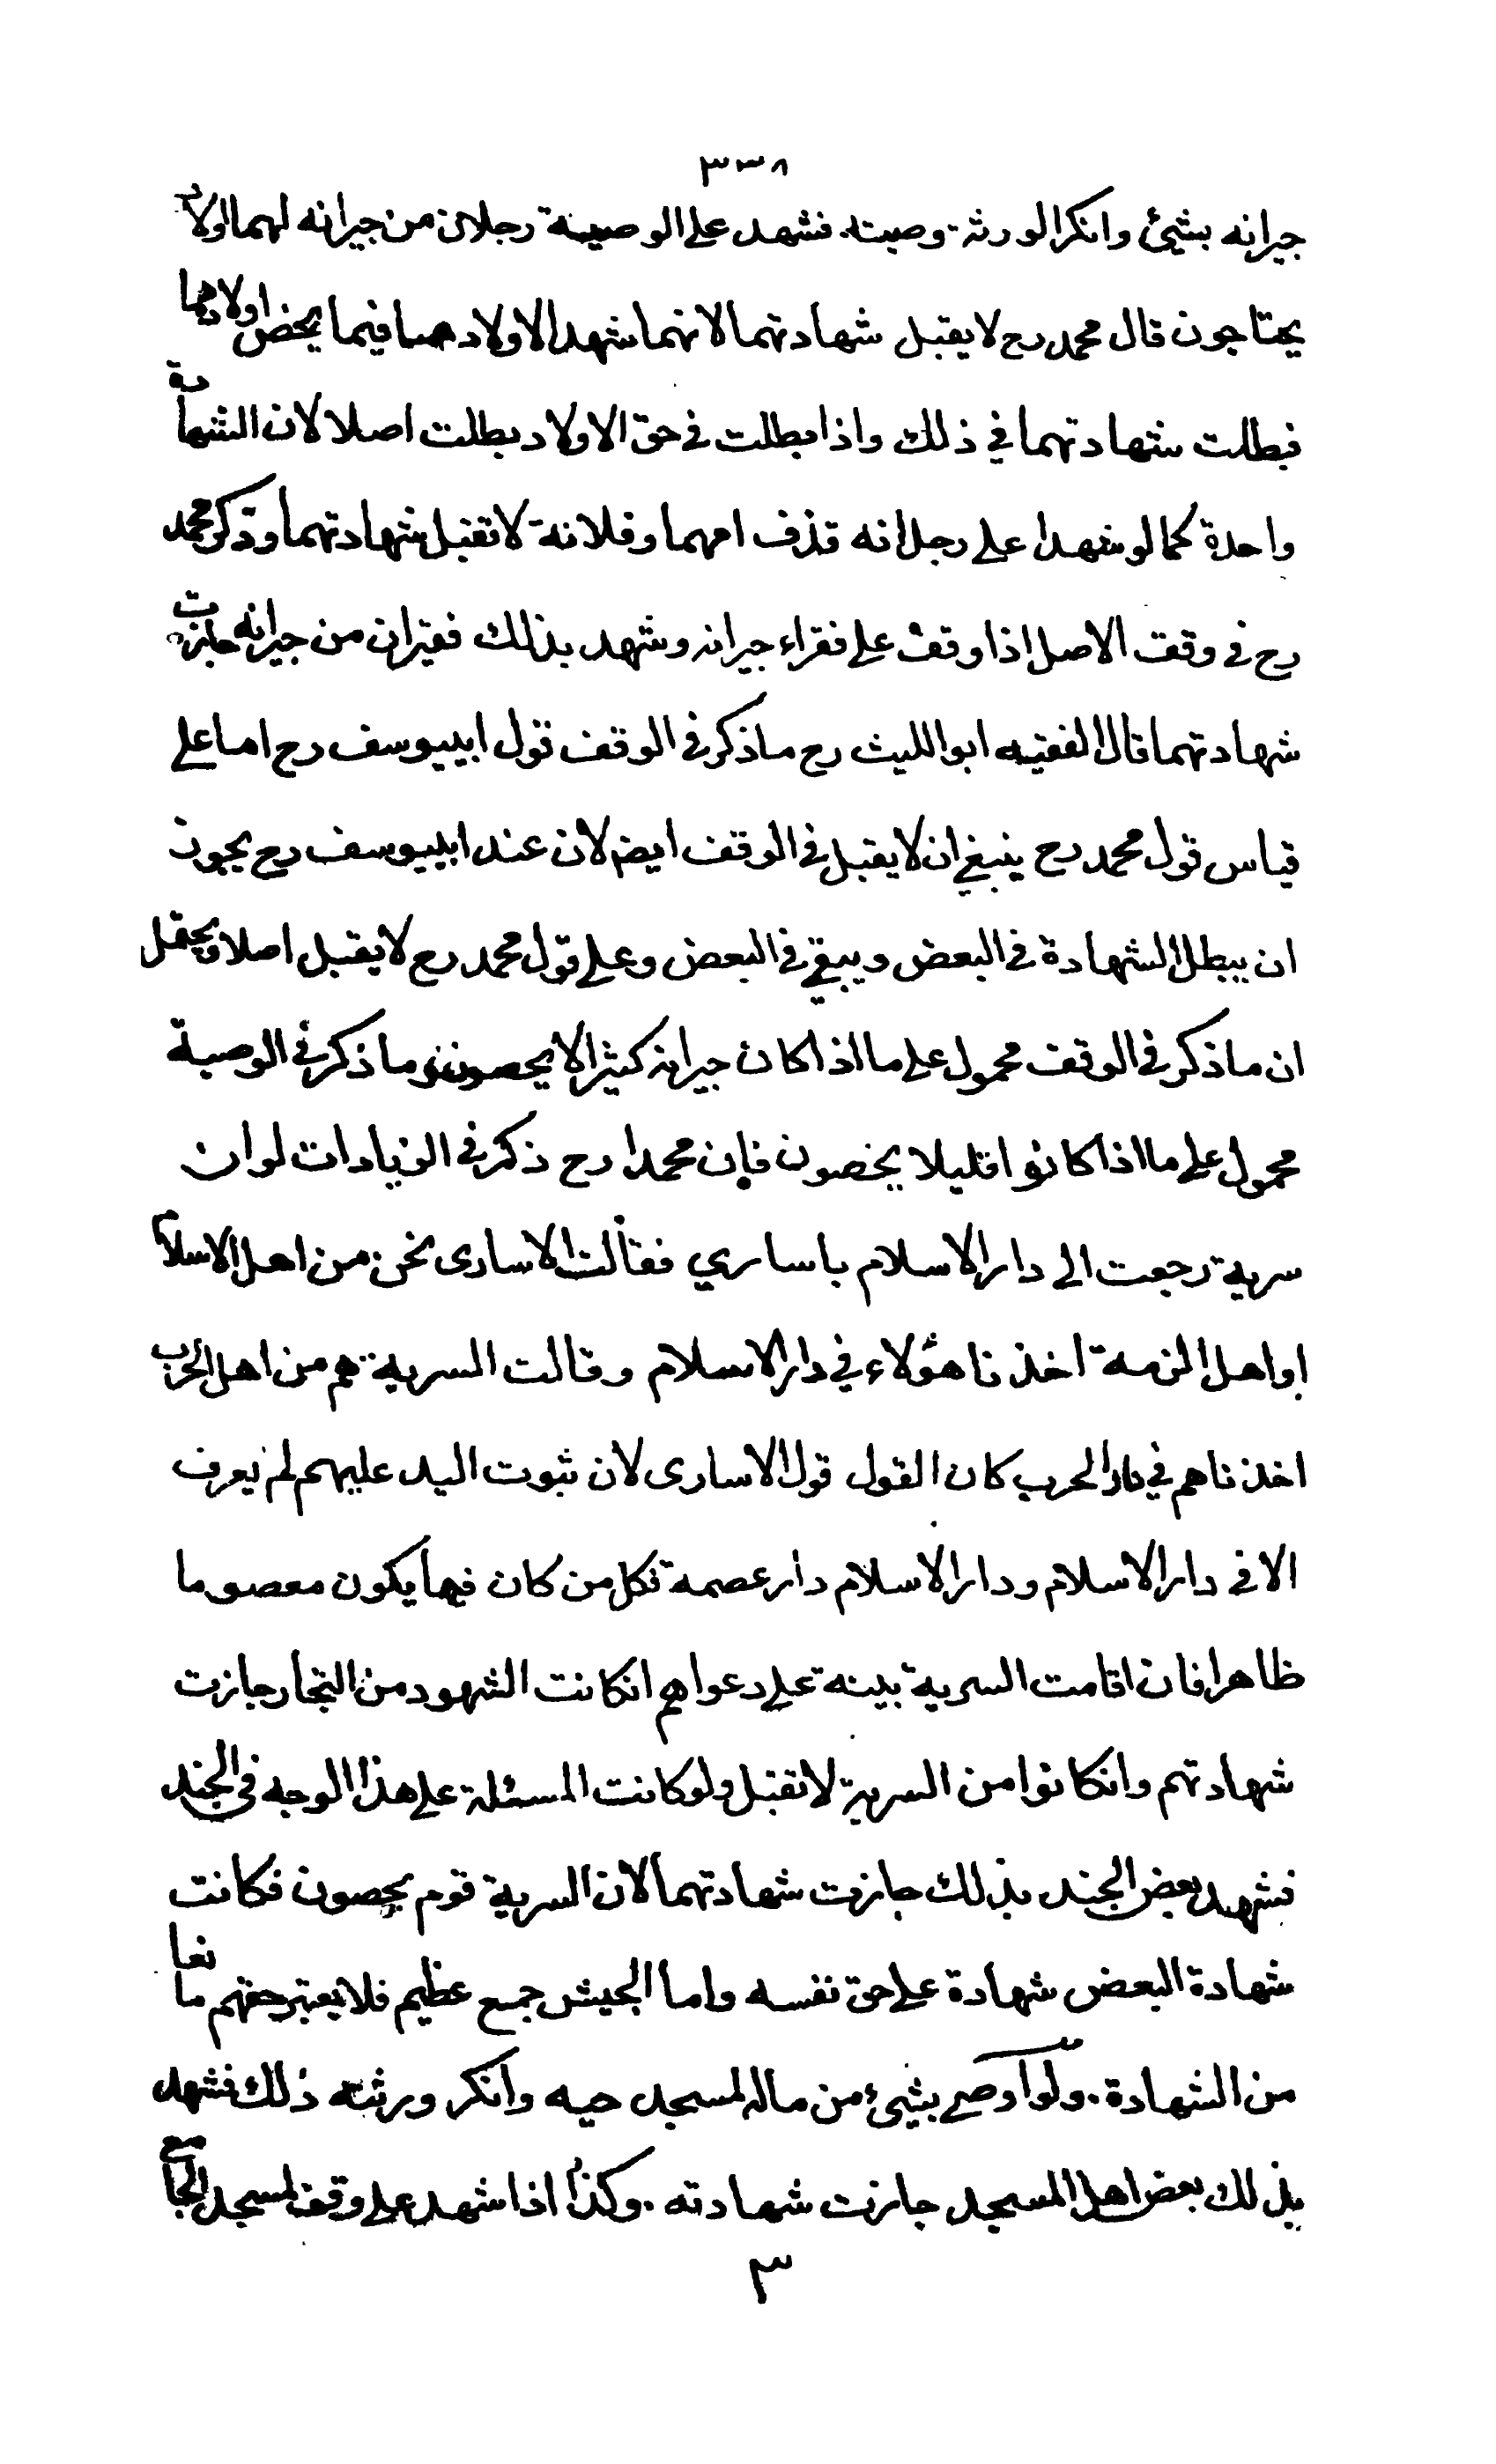 ٣٣٨
جيرانه بشئ وانكر الورثة وصيته فشهد على الوصية رجلان من جيرانه لهما اولاد
يحتاجون قال محمد رح لا يقبل شهادتهما لانهما شهدا لاولادهما فيما يخص اولادهما
فبطلت شهادتهما في ذلك واذا بطلت في حق الاولاد بطلت اصلا لان الشهادة
واحدة كما لو شهدا على رجل انه قذف امهما وفلانة لا تقبل شهادتهما وذكر محمد
رح في وقف الاصل اذا وقف على فقراء جيرانه وشهد بذلك فقيران من جيرانه جازت
شهادتهما قال الفقيه ابو الليث رح ما ذكر في الوقف قول ابييوسف رح اما على
قياس قول محمد رح ينبغي ان لا يقبل في الوقف ايضا لان عند ابييوسف رح يجوز
ان يبطل الشهادة في البعض ويبقى في البعض وعلى قول محمد رح لا يقبل اصلا ويحتمل
ان ما ذكر في الوقف محمول على ما اذا كان جيرانه كثيرا لا يحصون وما ذكر في الوصية
محمول على ما اذا كانوا قليلا يحصون فإن محمدا رح ذكر في الزيادات لو ان
سرية رجعت الى دار الاسلام باساري فقالت الاسارى نحن من اهل الاسلام
او اهل الذمة اخذنا هؤلاء في دار الاسلام وقالت السرية هم من اهل الحرب
اخذناهم في دار الحرب كان القول قول الاسارى لان ثبوت اليد عليهم لم يعرف
الا في دار الاسلام ودار الاسلام دار عصمة فكل من كان فيها يكون معصوما
ظاهرا فان اقامت السرية بينة على دعواهم انكانت الشهود من التجار جازت
شهادتهم وانكانوا من السرية لا تقبل ولو كانت المسئلة على هذا الوجه في الجند
فشهد بعض الجند بذلك جازت شهادتهما لان السرية قوم يحصون فكانت
شهادة البعض شهادة على حق نفسه واما الجيش جمع عظيم فلا يعتبر حقهم مانعا
من الشهادة. ولو اوصى بشئ من ماله لمسجد حيه وانكر ورثته ذلك فشهد
بذلك بعض اهل المسجد جازت شهادته. وكذا اذا شهد على وقف لمسجد الجامع
٣